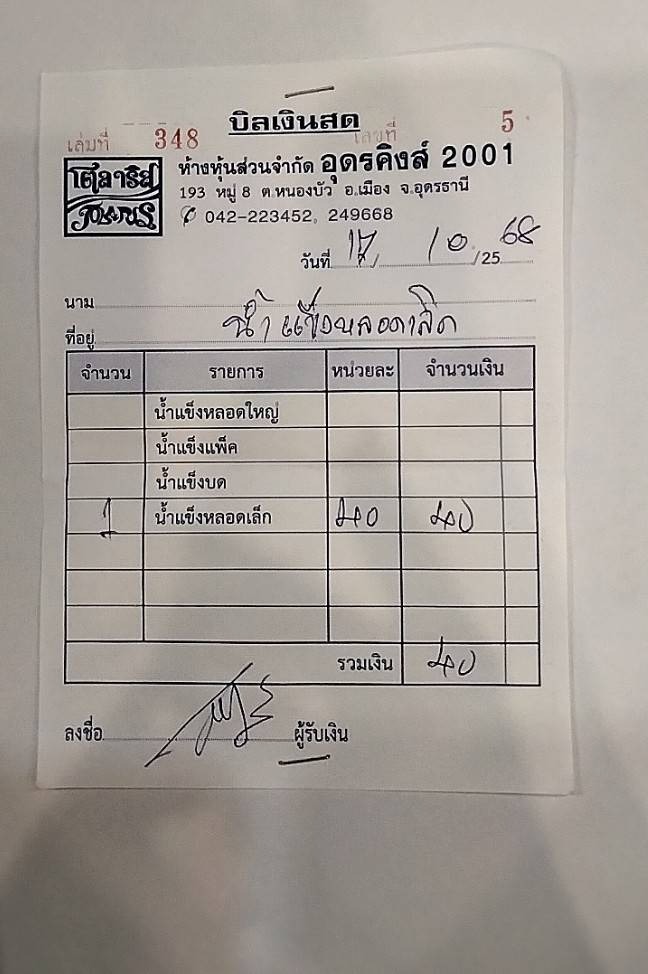 บิลเงินสด
เล่มที่ 348 เลขที่ 5
โต๋ลาริส
ห้างหุ้นส่วนจำกัด อุดรคิงส์ 2001
193 หมู่ 8 ต.หนองบัว อ.เมือง จ.อุดรธานี
042-223452, 249668
วันที่ 17 / 10 /25 68
นาม
ที่อยู่ น้ำแข็งหลอดเล็ก
จำนวน รายการ หน่วยละ จำนวนเงิน
น้ำแข็งหลอดใหญ่
น้ำแข็งแพ็ค
น้ำแข็งบด
1 น้ำแข็งหลอดเล็ก 40 40
รวมเงิน 40
ลงชื่อ ผู้รับเงิน